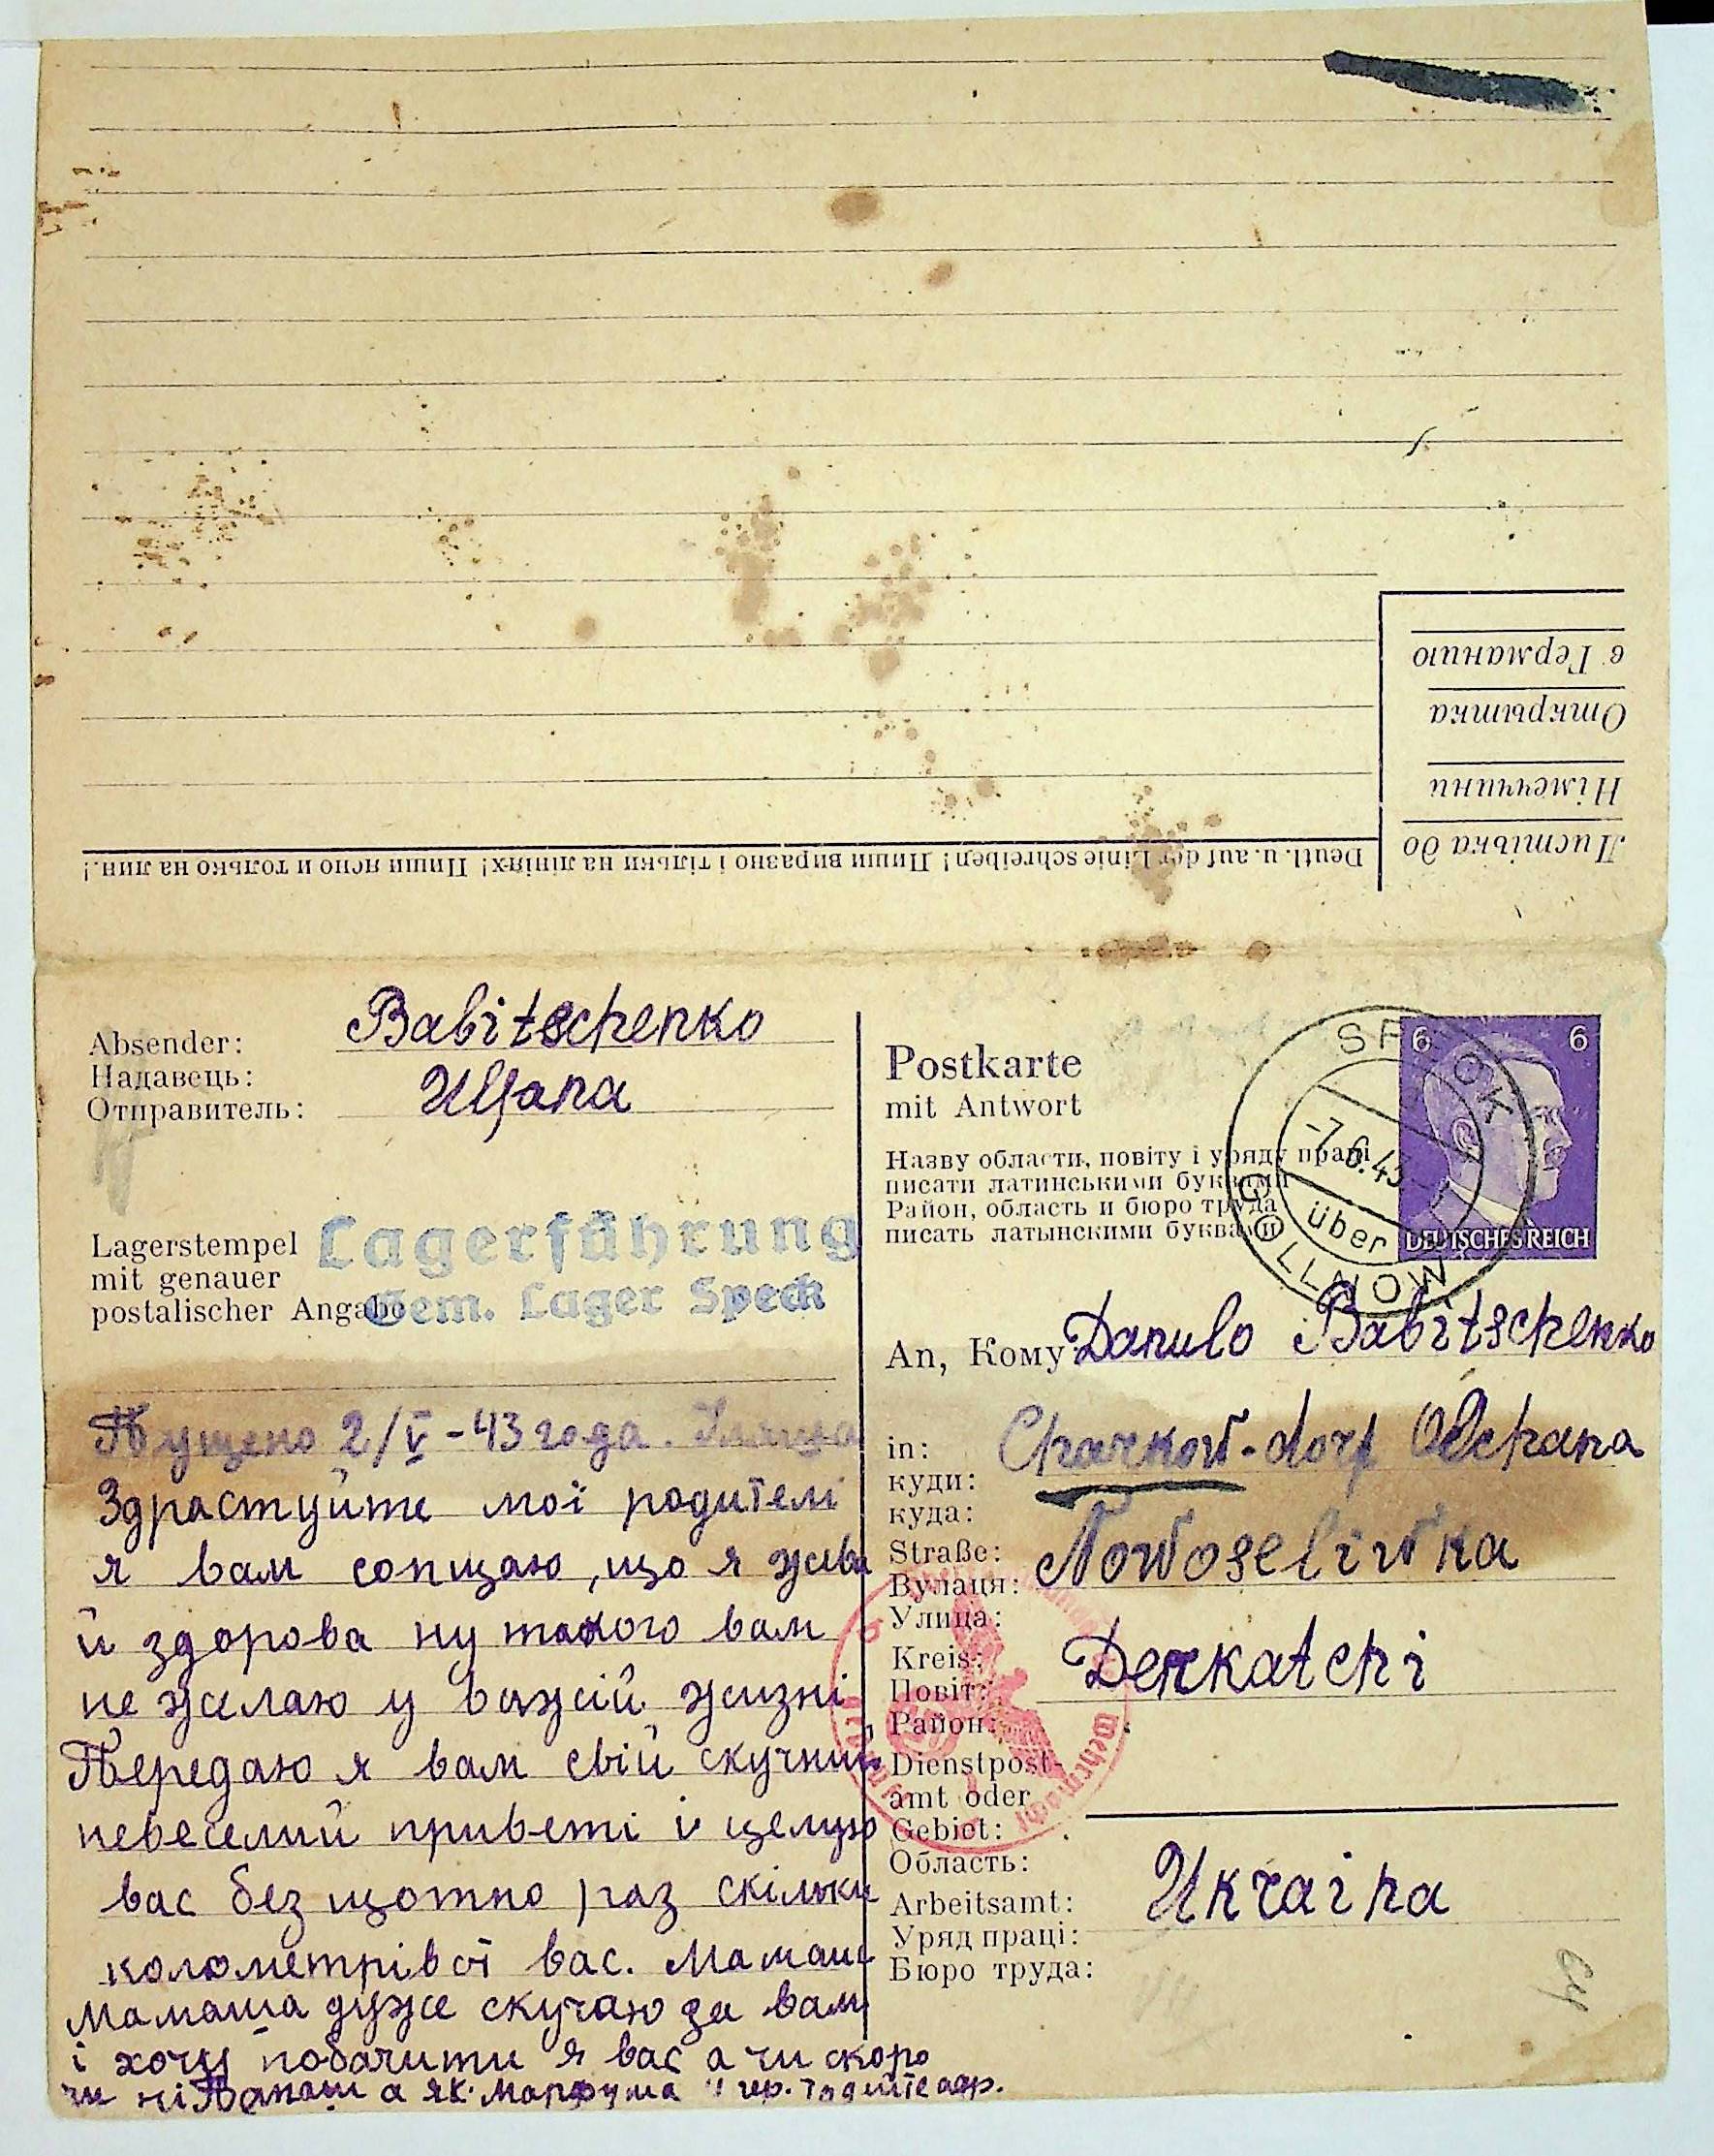 в Германию
Открытка
Німеччини
Листівка до
Deutl. u. auf der Linie schreiben! Пиши виразно і тільки на лініях! Пиши ясно и только на лин.!
Absender:
Надавець:
Отправитель:
Babitschenko
Uljana
Lagerstempel
mit genauer
postalischer Angabe
Lagerführung
Gem. Lager Speck
Пущено 2/V-43 года.
Здраствуйте мої родителі
я вам сопщаю, що я жива
й здорова ну такого вам
не желаю у вашій жизні
Передаю я вам свій скучний
невеселий привет і і целую
вас без щотно раз скільки
колометрів от вас. Мамаш
Мамаша дуже скучаю за вам
і хочу побачити я вас а чи скоро
чи ні Папаш а як Марфуша адр.
Postkarte
mit Antwort
Назву области, повіту і уряду праці
писати латинськими буквами
Район, область и бюро труда
писать латынскими буквами
6 6
DEUTSCHES REICH
SPECK
-7.6.43
über
GOLLNOW
An, Кому: Danulo Babitschenko
in:
куди:
куда:
Charkow-dorf Olchana
Straße:
Вулиця:
Улица:
Nowoseliwka
Kreis:
Повіт:
Район:
Derkatchi
Dienstpost-
amt oder
Gebiet:
Область:
Arbeitsamt:
Уряд праці:
Бюро труда:
Ukraina
Wehrmacht